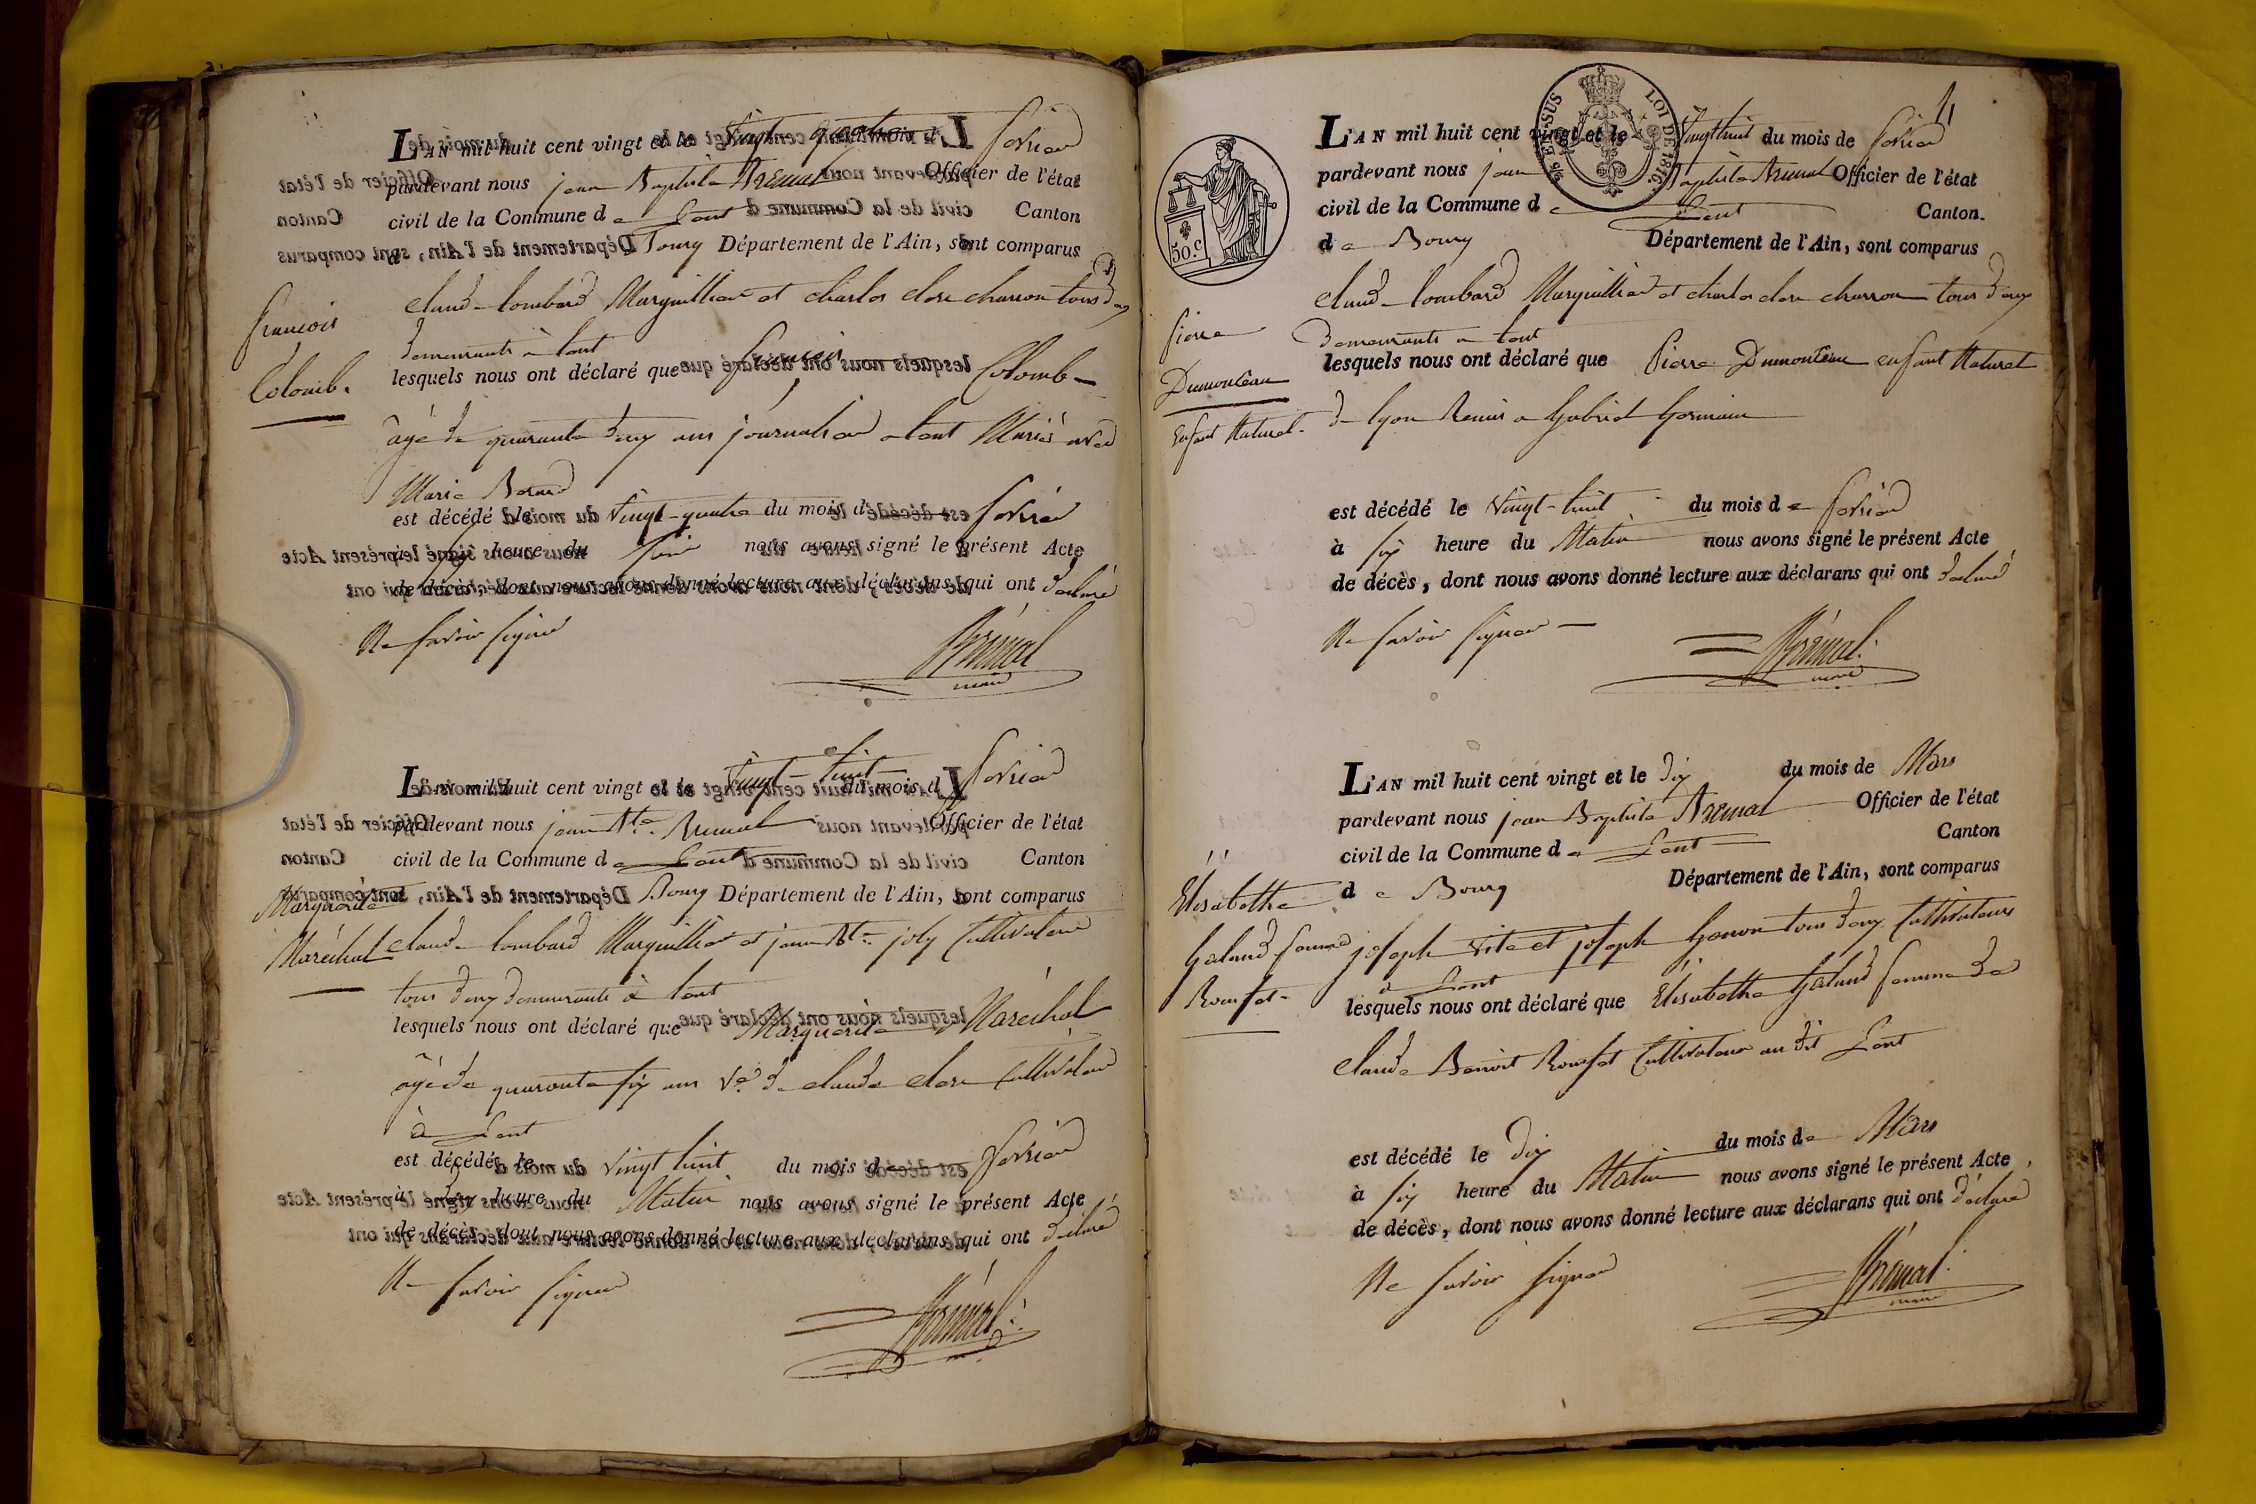 L'AN mil huit cent vingt et le vingt quatre du mois de fevrier
pardevant nous jean Baptiste Brémal Officier de l'état
civil de la Commune de Lent Canton
de Bourg Département de l'Ain, sont comparus
claude lombard Marguillier et charles clere charron tous deux
demeurants à lent
françois
Colomb.
lesquels nous ont déclaré que françois Colomb
âgé de quarante deux ans journalier a lent Marié avec
Marie Berard
est décédé le vingt-quatre du mois de fevrier
à heure du soir nous avons signé le présent Acte
de décès, dont nous avons donné lecture aux déclarans qui ont declaré
Ne savoir signer
Brémal
maire
L'AN mil huit cent vingt et le vingt-huit du mois de fevrier
pardevant nous jean Bte Brémal Officier de l'état
civil de la Commune de Lent Canton
de Bourg Département de l'Ain, sont comparus
Marguerite
Maréchal
claude lombard Marguillier et jean Bte joly Cultivateur
tous deux demeurants à lent
lesquels nous ont déclaré que Marguerite Maréchal
âgée de quarante six ans Ve de claude clere Cultivateur
à Lent
est décédé le vingt huit du mois de fevrier
à heure du Matin nous avons signé le présent Acte
de décès, dont nous avons donné lecture aux déclarans qui ont declaré
Ne savoir signer
Brémal
4
EN SUS LOI DE 1816
50 c.
L'AN mil huit cent vingt et le vingt huit du mois de fevrier
pardevant nous jean Baptiste Brémal Officier de l'état
civil de la Commune de Lent Canton.
de Bourg Département de l'Ain, sont comparus
claude lombard Marguillier et charles clere charron tous deux
demeurants a lent
Pierre
Dumonceau
Enfant Naturel
lesquels nous ont déclaré que Pierre Dumonceau enfant Naturel
de lyon Remis a Gabriel Germain
est décédé le vingt-huit du mois de fevrier
à six heure du Matin nous avons signé le présent Acte
de décès, dont nous avons donné lecture aux déclarans qui ont declaré
Ne savoir signer
Brémal
maire
L'AN mil huit cent vingt et le dix du mois de Mars
pardevant nous jean Baptiste Brémal Officier de l'état
civil de la Commune de Lent Canton
de Bourg Département de l'Ain, sont comparus
Elisabethe
Galand femme
joseph vite et joseph tous deux Cultivateurs
à Lent
lesquels nous ont déclaré que Elisabethe Galand femme de
claude Benoit Cultivateur au dit Lent
est décédé le dix du mois de Mars
à six heure du Matin nous avons signé le présent Acte
de décès, dont nous avons donné lecture aux déclarans qui ont déclaré
Ne savoir signer
Brémal
maire